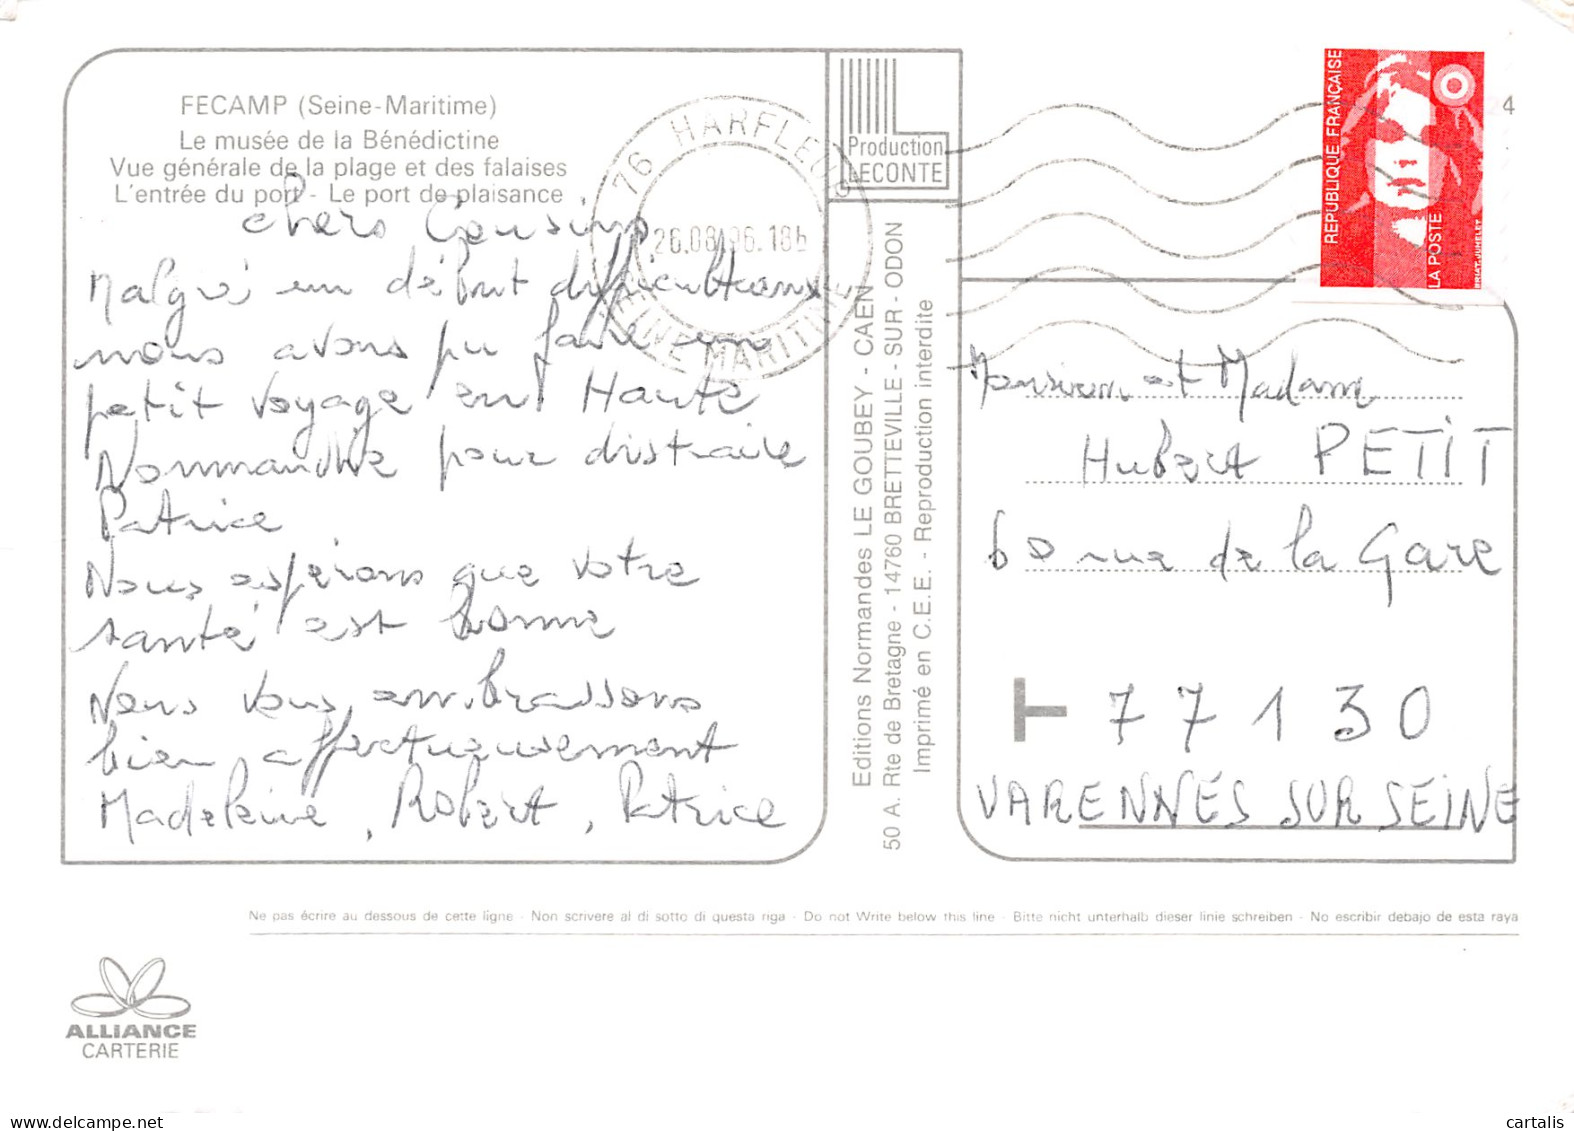 FECAMP (Seine-Maritime)
Le musée de la Bénédictine
Vue générale de la plage et des falaises
L'entrée du port - Le port de plaisance
chers Cousins
Malgré un début difficultueux
nous avons pu faire un
petit voyage en Haute
Normandie pour distraire
Patrice
Nous espérons que votre
santé est bonne
Nous vous embrassons
bien affectueusement
Madeleine, Robert, Patrice
76 HARFLEUR
26.08.96.18h
SEINE MARITIME
Production
LECONTE
Editions Normandes LE GOUBEY - CAEN
50 A. Rte de Bretagne - 14760 BRETTEVILLE - SUR - ODON
Imprimé en C.E.E. - Reproduction interdite
REPUBLIQUE FRANÇAISE
LA POSTE
BRIAT-JUMELET
4
Monsieur et Madame
Hubert PETIT
60 rue de la Gare
77130
VARENNES SUR SEINE
Ne pas écrire au dessous de cette ligne - Non scrivere al di sotto di questa riga - Do not Write below this line - Bitte nicht unterhalb dieser linie schreiben - No escribir debajo de esta raya
ALLIANCE
CARTERIE
cartalis
www.delcampe.net